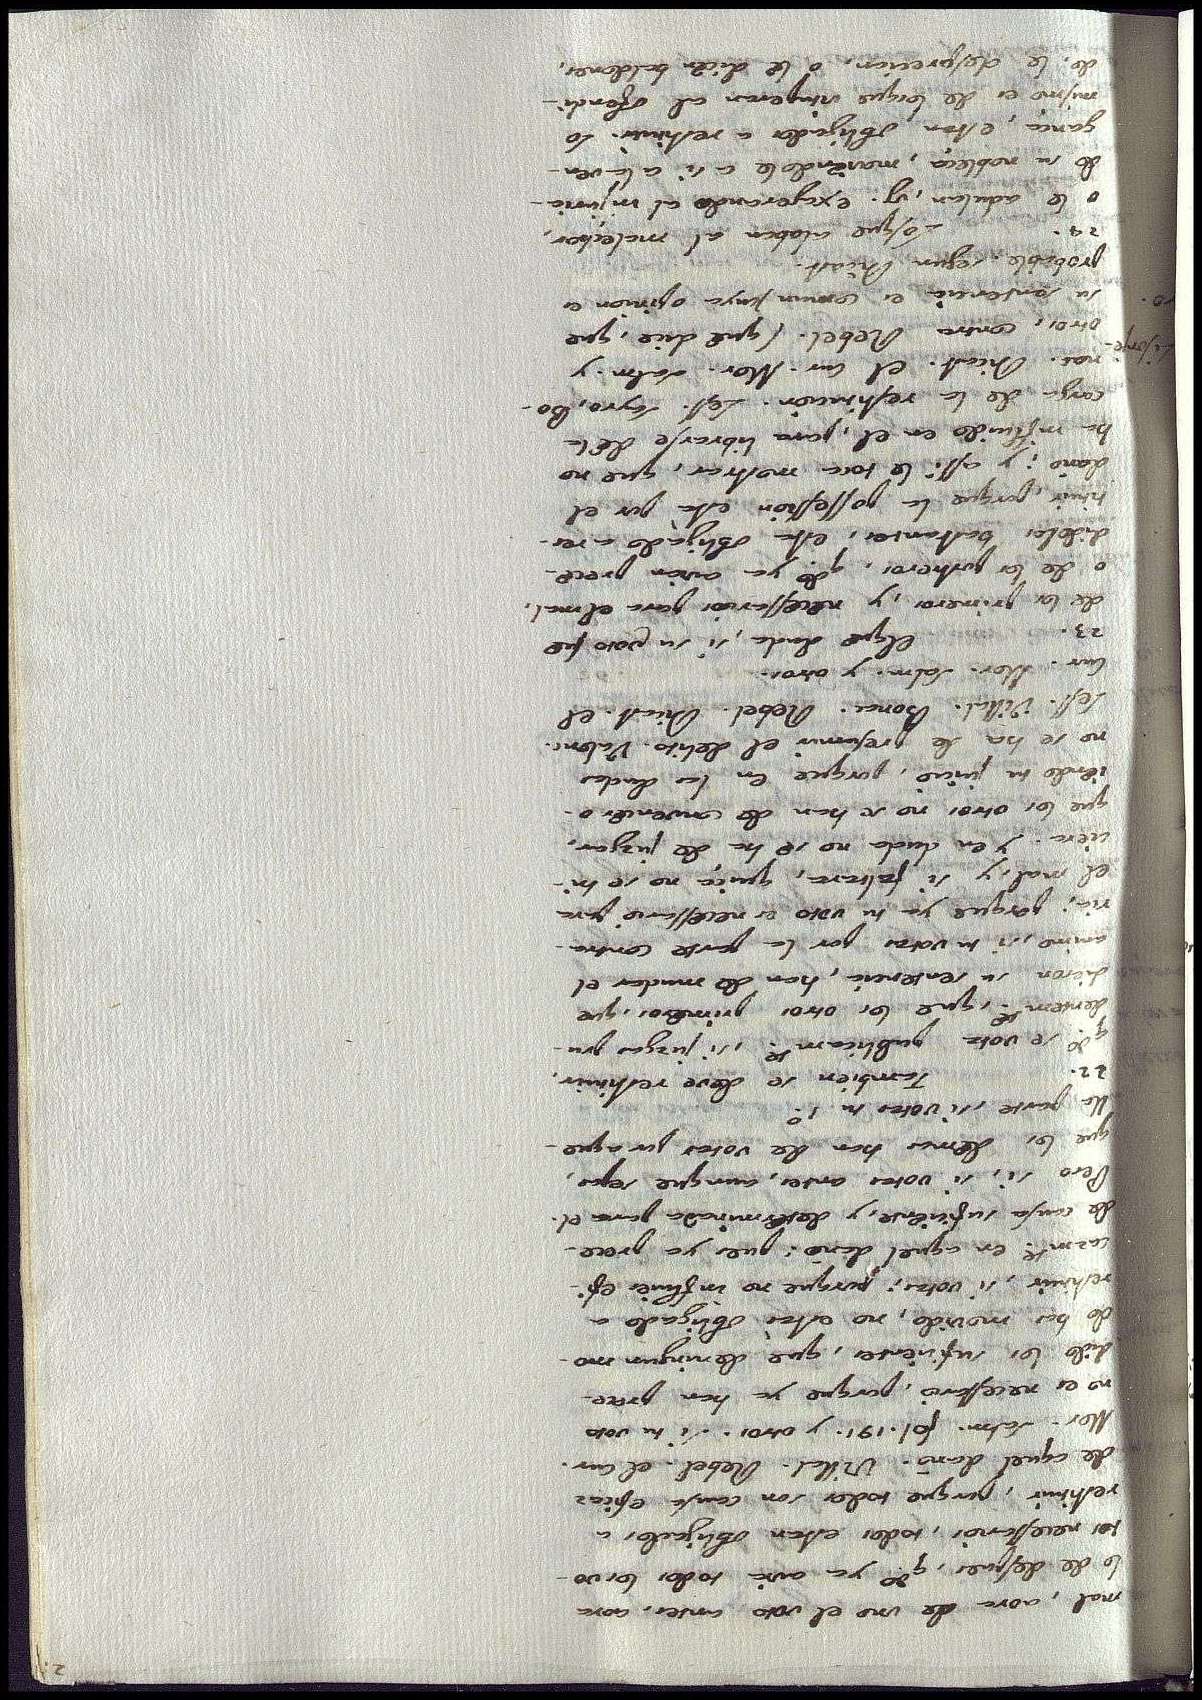 mal, aora de uno el voto antes, aora
lo de despues, q.do ya avia todos los vo-
tos necessarios, todos estan obligados a
restituir, porque todos son causa eficaz
de aquel daño. Villal. Rebel. el Cur.
Mor. Salm. fol. 191. y otros. Si tu voto
no es necessario, porque ya han prece-
dido los suficientes, que de ningun mo-
do has movido, no estas obligado a
restituir, si votas; porque no influies efi-
cazm.te en aquel daño; pues ya prece-
de causa suficiente, y determinada para el.
Pero si, si votas antes, aunque sepas,
que los demas han de votar por aque-
lla parte, si votas tu 1.º
22. Tambien se deve restituir,
q.do se vota publicam.te, si juzgas pru-
dentem.te, que los otros primeros, que
dieron su sentencia, han de mudar el
animo, si tu votas por la parte contra-
ria; porque ya tu voto es necessario para
el mal, y si faltara, quiça no se hi-
ciera. Y en duda no se ha de juzgar,
que los otros no se han de convencer o-
iendo tu juicio, porque en las dudas
no se ha de presumir el delito. Valent.
Less. Villal. Bonac. Rebel. Dicast. el
Cur. Mor. Salm. y otros.
23. El que duda, si su voto fue
de los primeros, y necessarios para el mal,
o de los postreros, q.do ya avian prece-
didolos bastantes, esta obligado a res-
tituir, porque la possession esta por el
daño; y assi le toca mostrar, que no
ha influido en el, para librarse de la
carga de la restitucion. Less. Sayro, Bo-
nac. Dicast. el Cur. Mor. Salm. y
otros, contra Rebel. (que dice, que
su sentencia es comun) cuya opinion es
probable segun Dicast.
24. Los que alaban al malechor,
o le adulan, vg. exagerando al injuria-
do su nobleça, moviendole a si a la ven-
gança, estan obligados a restituir. Lo
mismo es de los que vituperan al ofendi-
do, le desprecian, o le dicen baldones,
2